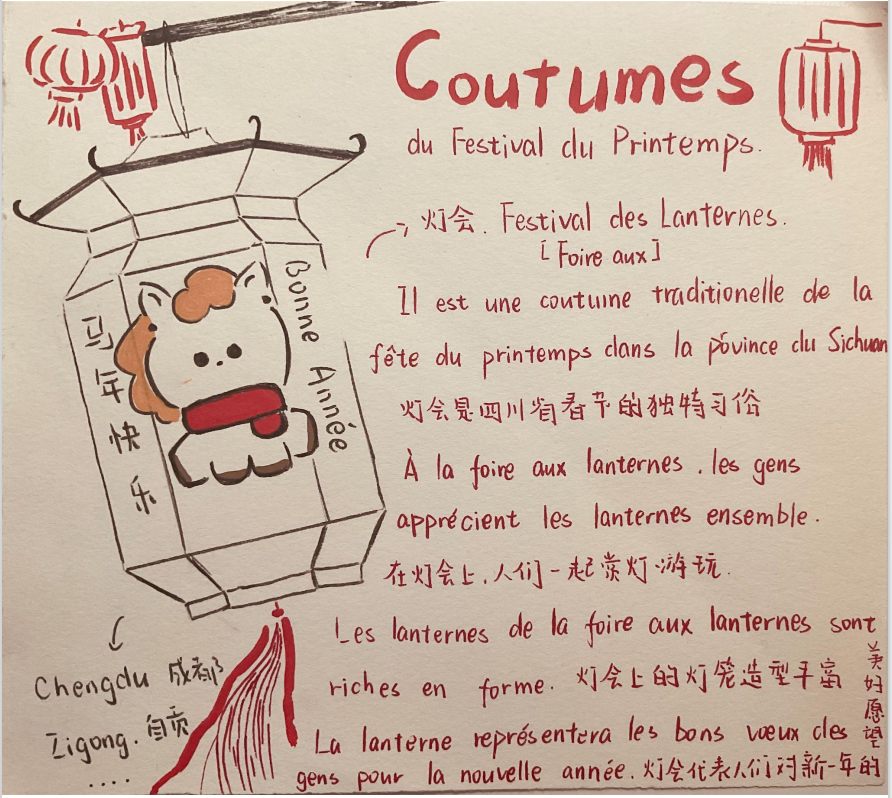 Coutumes
du Festival du Printemps.
灯会. Festival des Lanternes.
[Foire aux]
Il est une coutume traditionelle de la
fête du printemps dans la povince du Sichuan
灯会是四川省春节的独特习俗
À la foire aux lanternes, les gens
apprécient les lanternes ensemble.
在灯会上,人们一起赏灯游玩.
Les lanternes de la foire aux lanternes sont
riches en forme. 灯会上的灯笼造型丰富
La lanterne représentera les bons vœux des
gens pour la nouvelle année. 灯会代表人们对新一年的
美好愿望
马年快乐
Bonne Année
Chengdu 成都
Zigong. 自贡
....